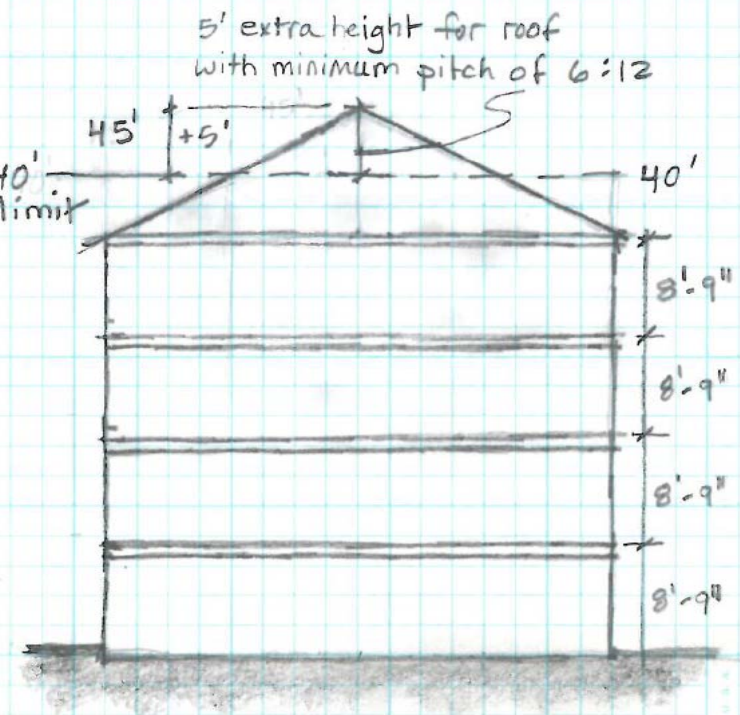 5' extra height for roof
with minimum pitch of 6:12
45'
+5'
40'
limit
40'
8'-9"
8'-9"
8'-9"
8'-9"